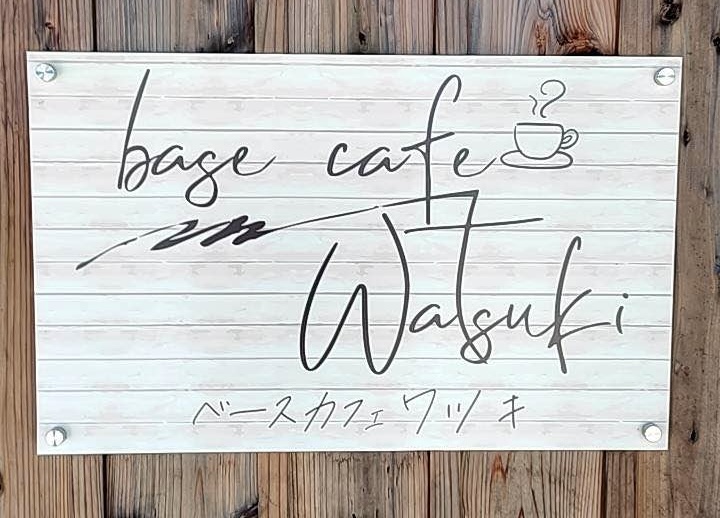 base cafe
Watsuki
ベースカフェワツキ